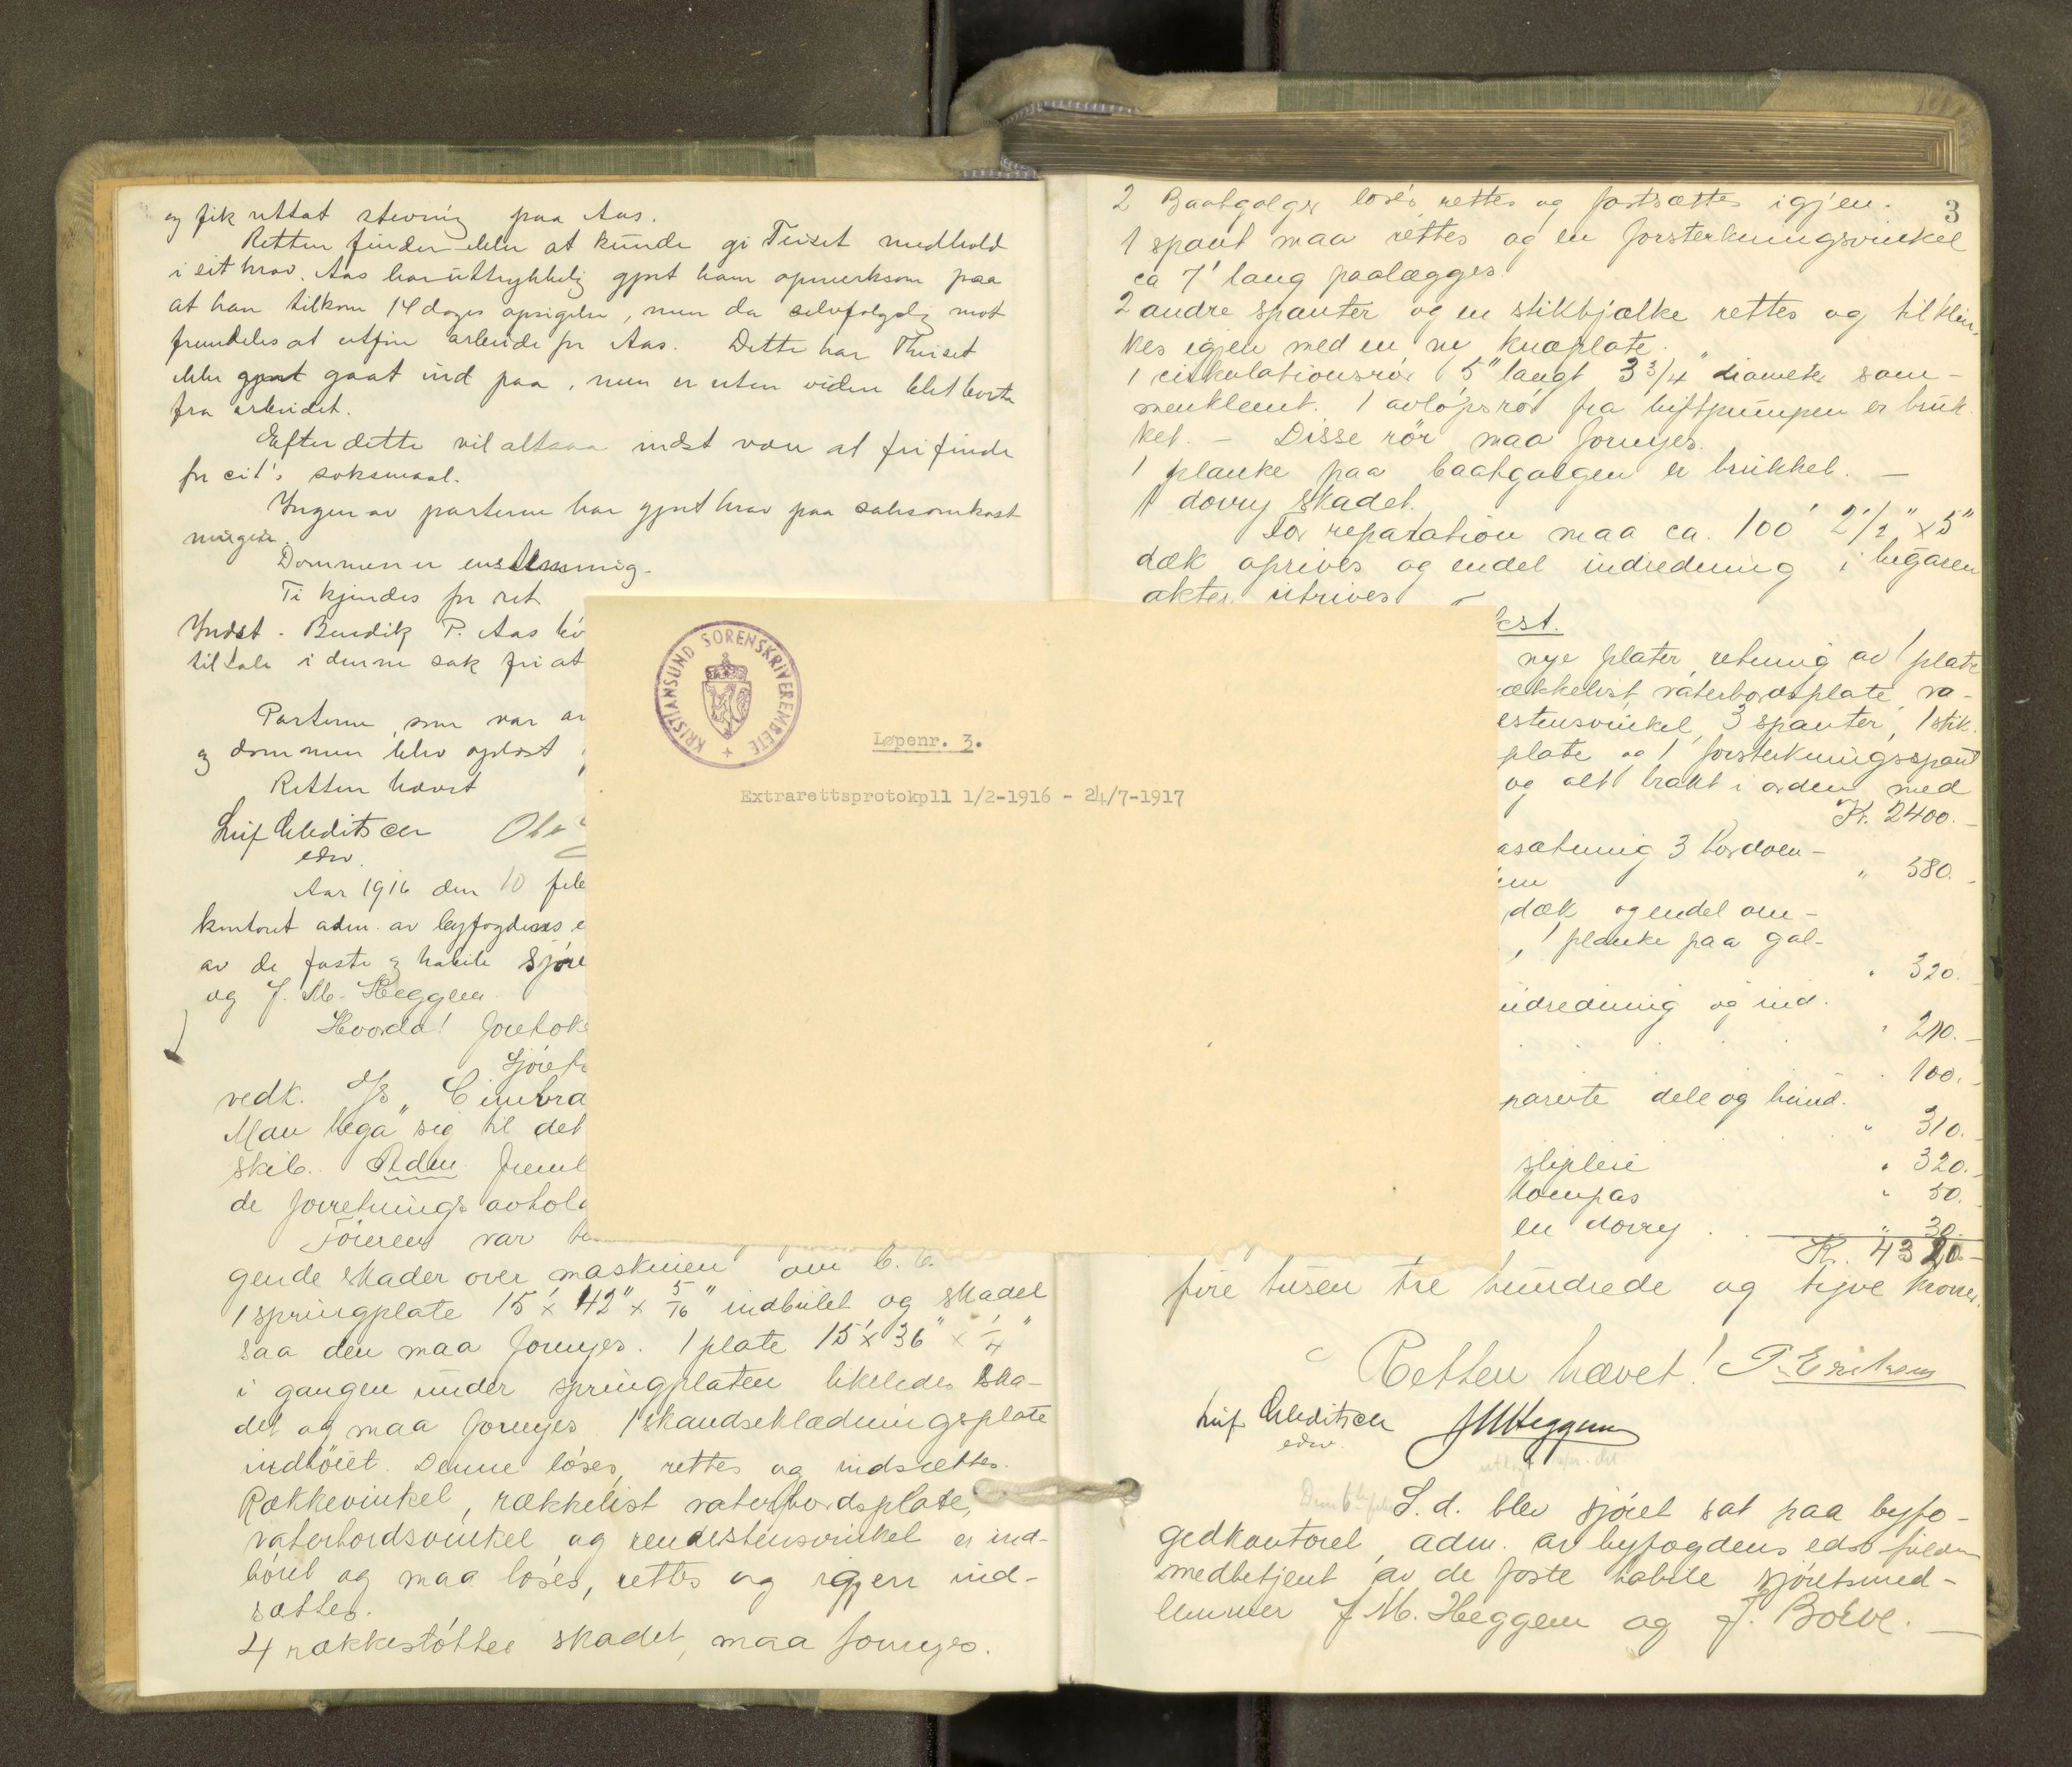 og fik uttat stevning paa Aas.
Retten finder ikke at kunde gi Tuset medhold
i sit krav. Aas har uttrykkelig gjort ham opmerksom paa
at han tilkom 14 dages opsigelse, men da selvfølgelig mot
fremdeles at utføre arbeide for Aas. Dette har Tuset
ikke gjort gaat ind paa, men er uten viden blit borte
fra arbeidet.
Efter dette vil altsaa indst være at frifinde
for cit's søksmaal.
Ingen av parterne har gjort krav paa saksomkost
ninger.
Dommen er enstemmig.
Ti kjendes for ret
Indst. Bendik P. Aas bø
tiltale i denne sak fri at
Parterne, som var
og dommen blev oplæst
Retten hævet
edsv.
Aar 1916 den 10 feb
kontoret adm. av byfogdens e
av de faste og habile sjøre
og J. M. Heggem
Hvorda! foretok
Sjøret
vedk. d/s "Cimbra
Man bega sig til det
skib. Adm. freml
de forretnings avhold
Føreren var
gende skader over maskinen om b. b.
1 springplate 15' x 42" x 5/16" indbulet og skadet
saa den maa fornyes. 1 plate 15' x 36" x 1/4"
i gangen under springplaten likeledes ska-
det og maa fornyes 1 skandseklædningsplate
indbøiet. Denne løses, rettes og indsættes.
Rækkevinkel, rækkelist vaterbordsplate,
vaterbordsvinkel og rendestensvinkel er ind-
bøiet og maa løses, rettes og igjen ind-
sættes.
4 rækkestøtter skadet, maa fornyes.
KRISTIANSUND SORENSKRIVEREMBETE
Løpenr. 3.
Extrarettsprotokpll 1/2-1916 - 24/7-1917
3
2 Baatgalger løses rettes og fastsættes igjen.
1 spant maa rettes og en forsterkningsvinkel
ca 7' lang paalægges.
2 andre spanter og en stikbjælke rettes og tilklin-
kes igjen med en ny knæplate.
1 cirkulationsrør 15" langt 3 3/4" diameter sam-
menklemt. 1 avløpsrør fra luftpumpen er bruk-
ket. - Disse rør maa fornyes.
1 planke paa baatgalgen er brukket. -
1 dorry skadet.
For reparation maa ca. 100' 2 1/2" x 5"
dæk oprives og endel indredning i lugaren
akter utrives
est.
nye plater, retning av 1 plate
ækkelist, vaterbordsplate, va-
estensvinkel, 3 spanter, 1 stik-
plate og 1 forsterkningsspant
og alt brakt i orden med
Kr. 2400.-
asætning 3 bordven-
" 580.-
dæk og endel om-
, 1 planke paa gal-
" 320.
indredning og ind.
" 210.-
" 100.-
parerte dele og haand.
" 310.-
slipleie " 320.-
kompas " 50.-
en dorry " 30.
Kr. 4320.-
fire tusen tre hundrede og tyve kroner.
Retten hævet! P. Eriksen
edsv. JMHeggem
S. d. blev sjøret sat paa byfo-
gedkontoret, adm. av byfogdens edsv fuldm
medbetjent av de faste habile sjøretsmed-
lemmer J M. Heggem og J. Bolve.